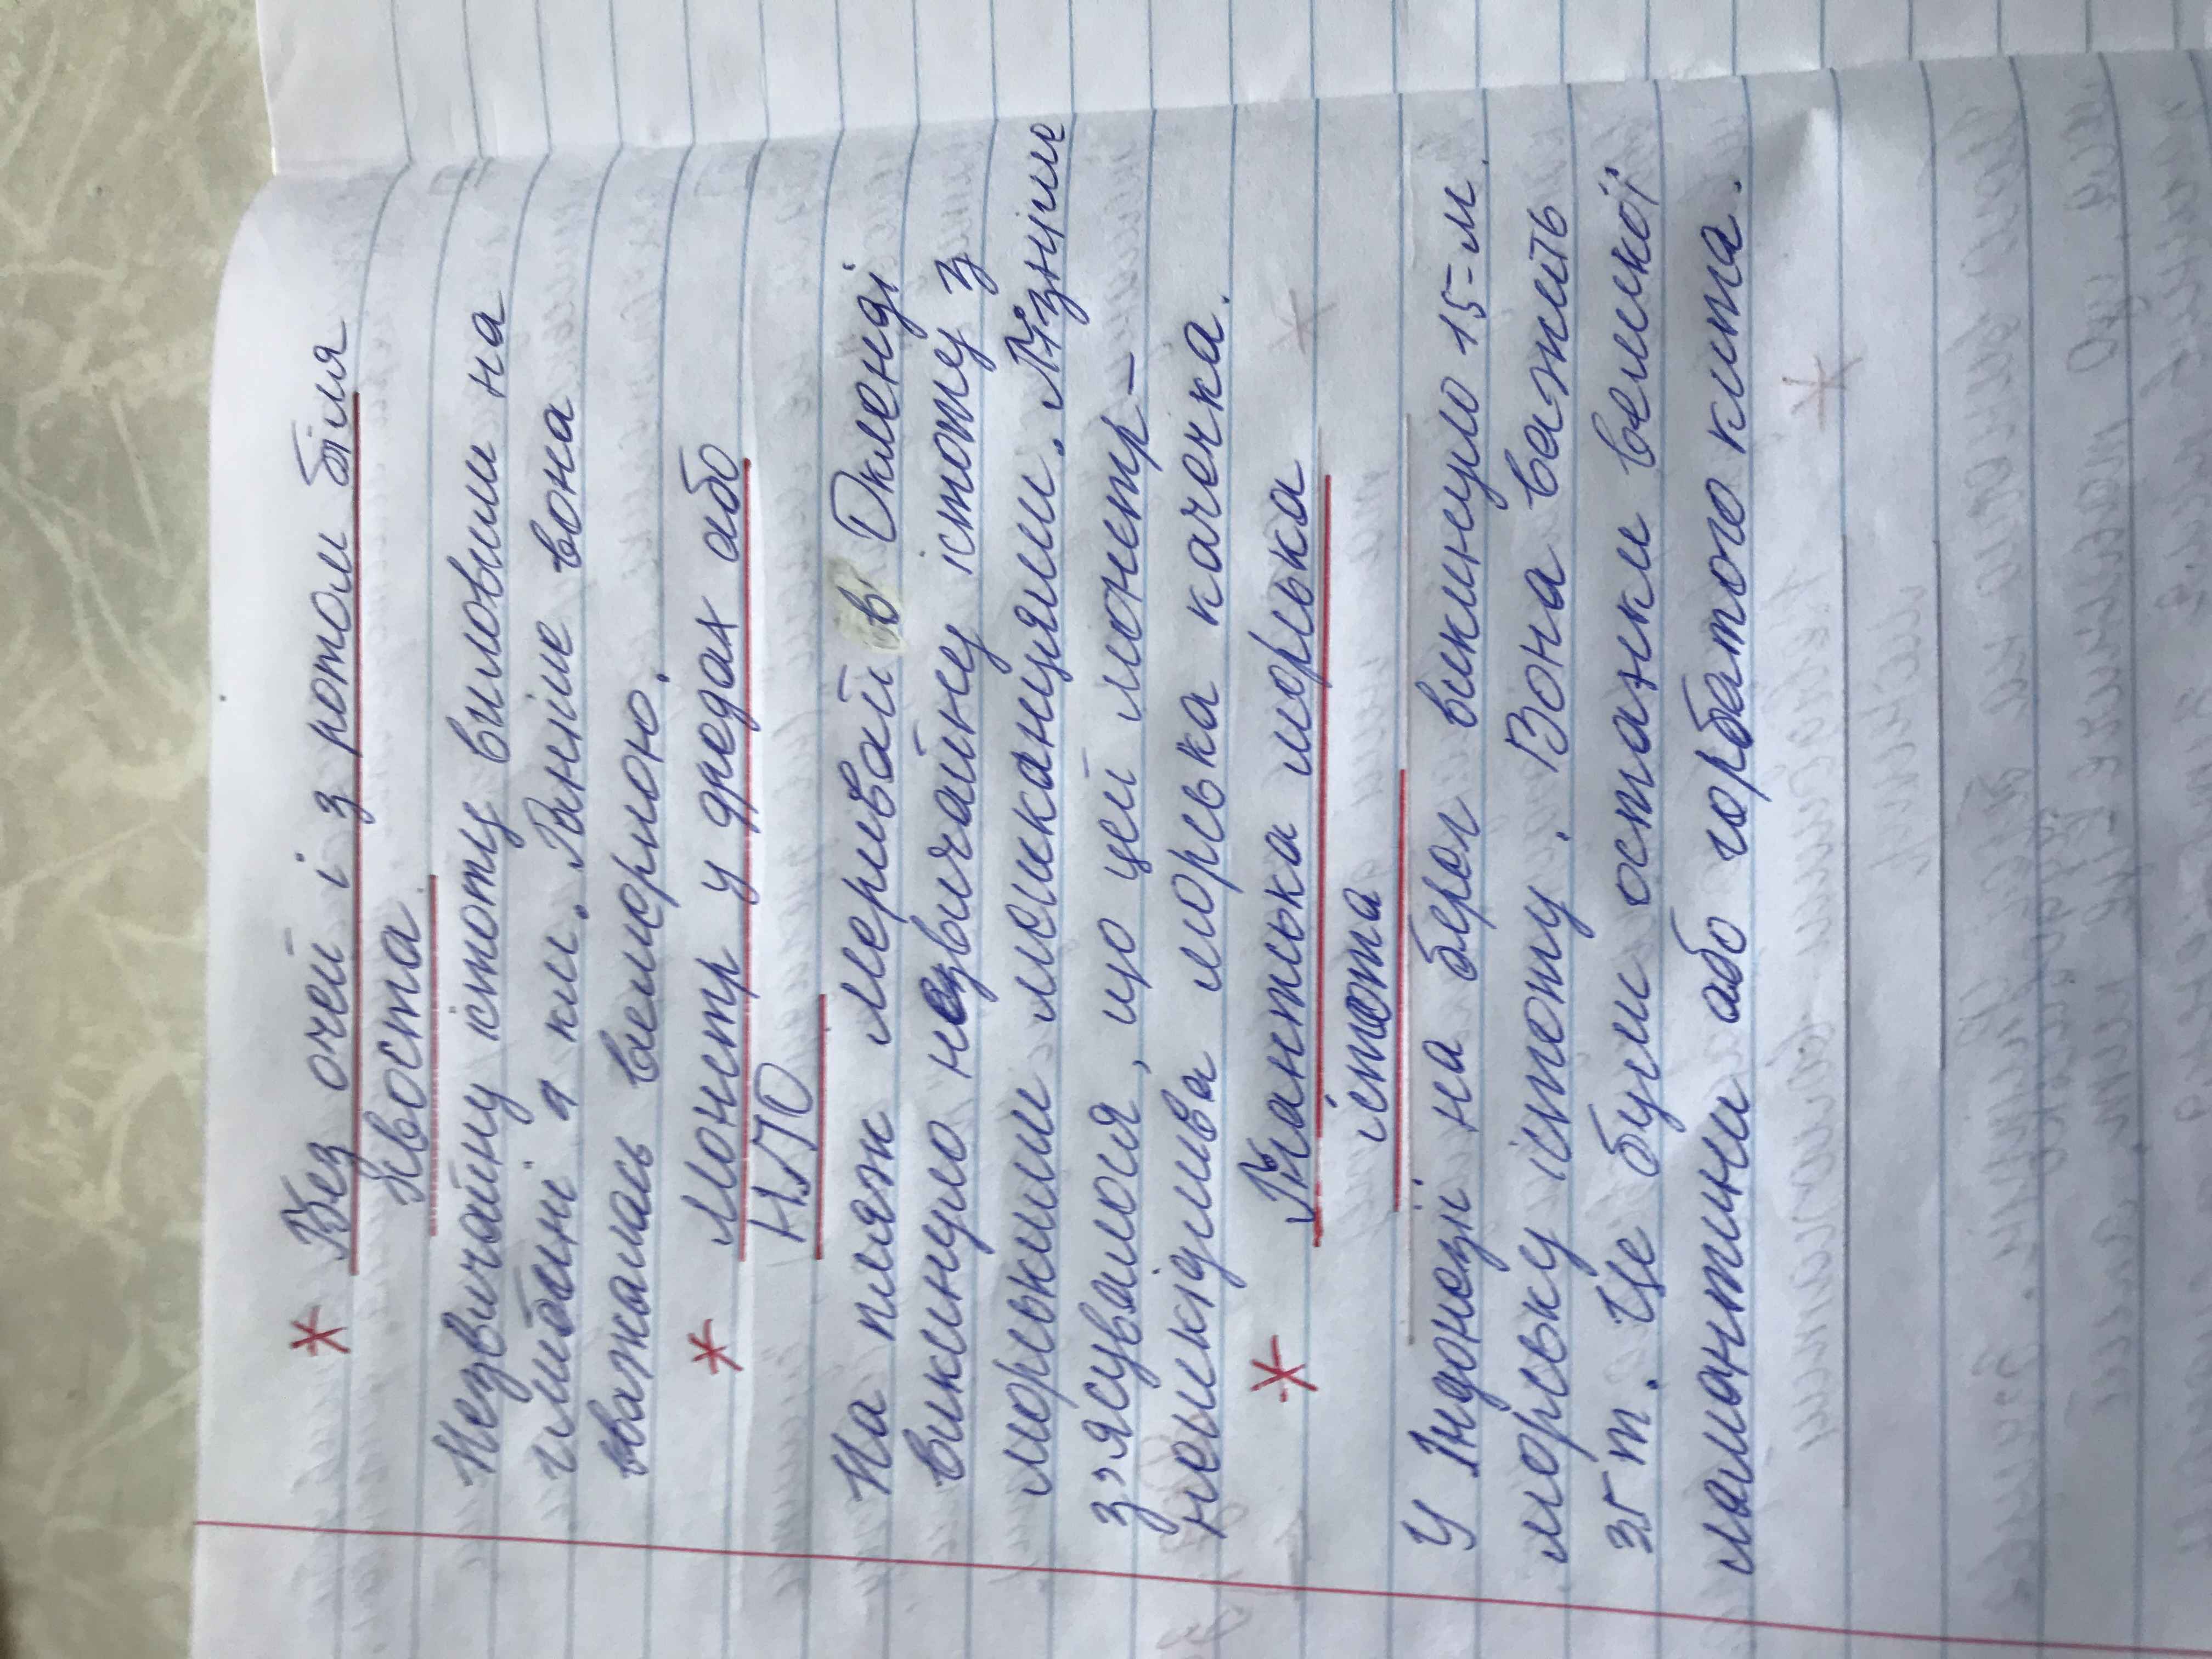 * Без очей і з ротом біля
хвоста
Незвичайну істоту виловили на
глибині 4 км. Раніше вона
важалась вемерлою.
* Монстр у дредах або
НЛО
На пляж Мерівай в Окленді
викинуло незвичайну істоту з
морськими мешканцями. Пізніше
з,ясувалося, що цей монстр -
нешкідлива морська качечка.
* Гіантська морська
істота
У Індонезії на берег викинуло 15-м
морську істоту. Вона важить
35 т. Це були останки великої
мамантини або горбатого кита.